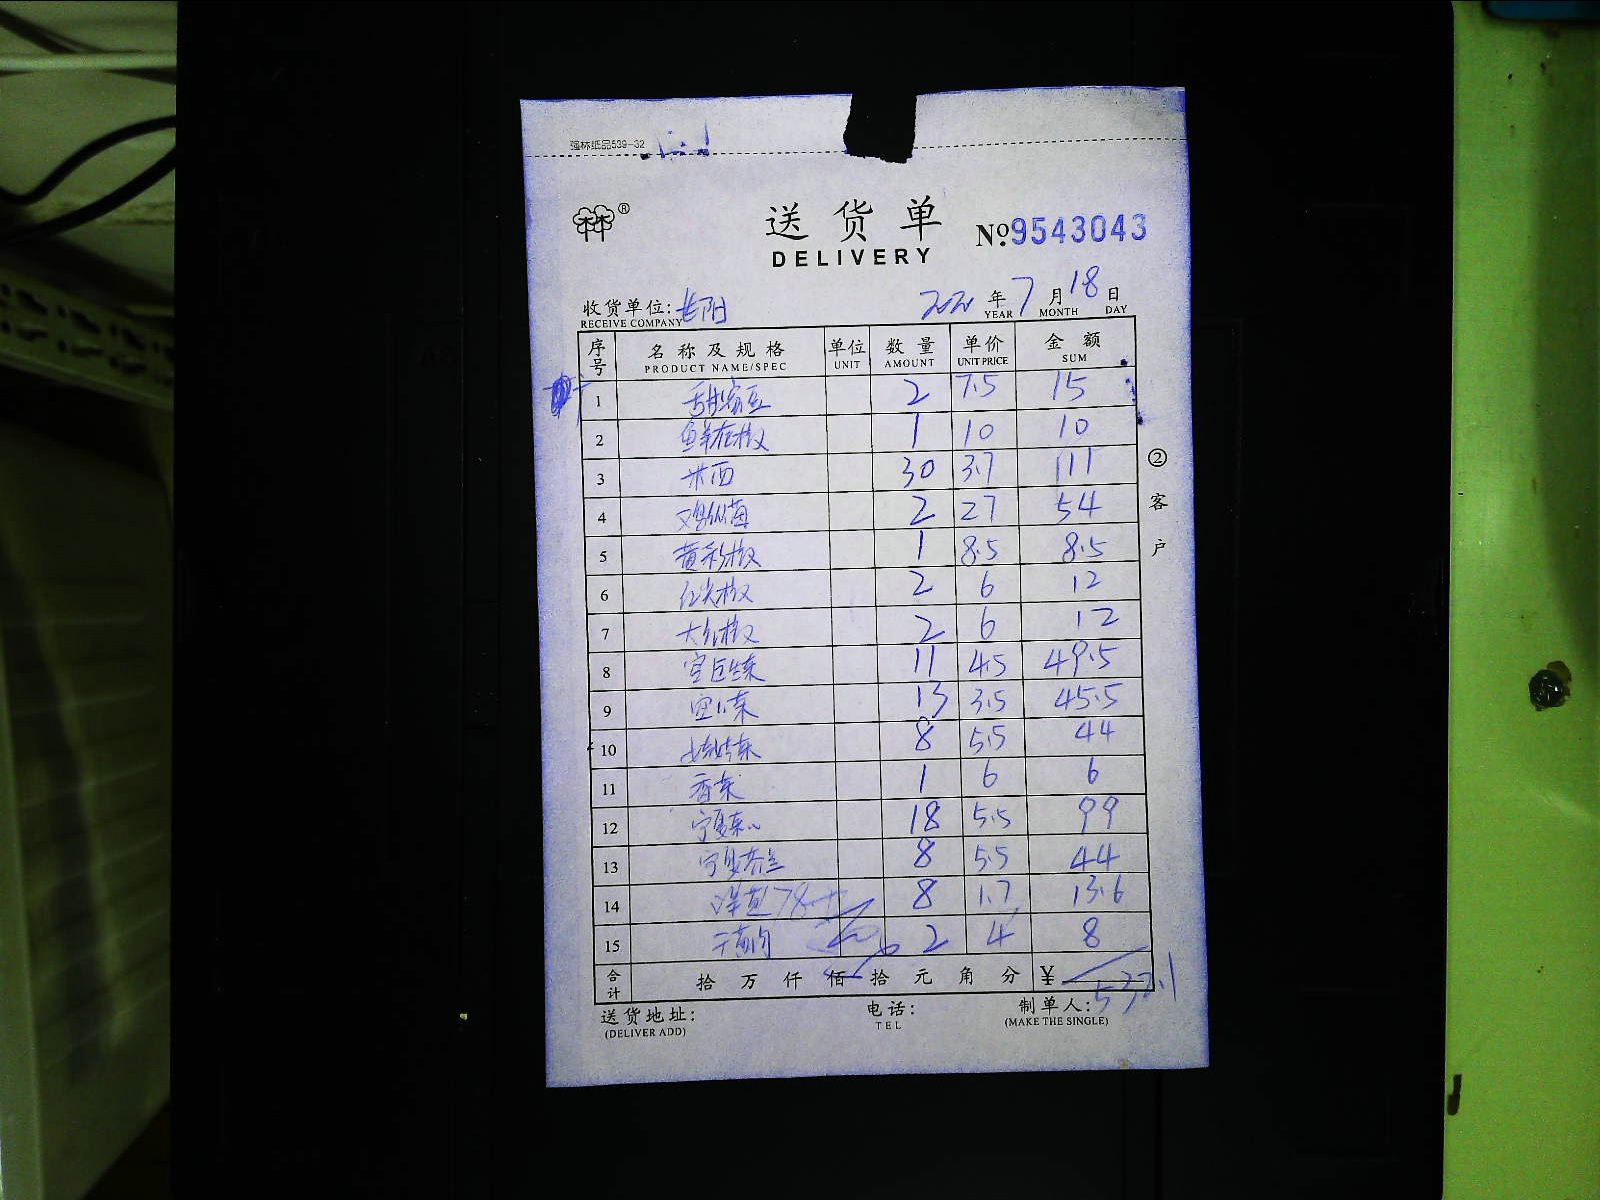 强林纸品539-32
林林®
送货单 No.9543043
DELIVERY
收货单位: 长阳 年 7 月 18 日
RECEIVE COMPANY YEAR MONTH DAY
序号 名称及规格 单位 数量 单价 金额
PRODUCT NAME/SPEC UNIT AMOUNT UNIT PRICE SUM
1 甜蜜豆 2 7.5 15
2 鲜花椒 1 10 10
3 米西 30 3.7 111
4 鸡纵菌 2 27 54
5 黄彩椒 1 8.5 8.5
6 红尖椒 2 6 12
7 大红椒 2 6 12
8 11 4.5 49.5
9 13 3.5 45.5
10 8 5.5 44
11 香菜 1 6 6
12 宁夏菜心 18 5.5 99
13 宁夏芥兰 8 5.5 44
14 8 1.7 13.6
15 2 4 8
合计 拾 万 仟 佰 拾 元 角 分 ¥ 532.1
送货地址: 电话: 制单人:
(DELIVER ADD) TEL (MAKE THE SINGLE)
②客户